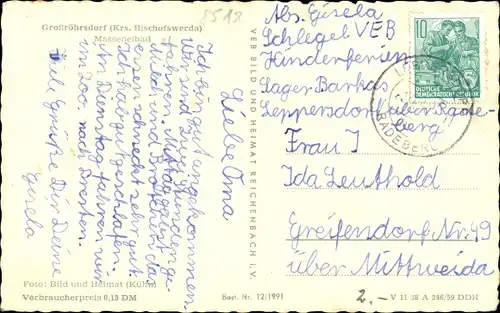 Großröhrsdorf (Krs. Bischofswerda)
Massenelbad
8518
Liebe Oma
Ich bin gut angekommen.
Wir sind zwei Stunden ge-
fahren. Mittag gabs
Milch und Brot. Das
Essen schmeckt sehr gut.
Ich habe gut geschlafen.
Am Dienstag fahren wir
im Zoo, nach Dresten.
Viele Grüße Dir Deine
Gisela
Foto: Bild und Heimat (Kühn)
Verbraucherpreis 0,15 DM
VEB BILD UND HEIMAT REICHENBACH I. V.
Best. Nr. 12/1991
Abs. Gisela
Schlegel VEB
Kinderferien
Lager Barkas
Leppersdorf über Rade-
berg
10
DEUTSCHE
DEMOKRATISCHE REPUBLIK
RADEBERG
Frau I
Ida Leuthold
Greifendorf Nr. 49
über Mittweida
2.-
V 11 28 A 246/59 DDR